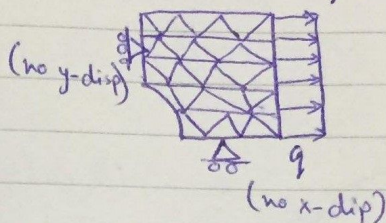 (no y-disp)
q
(no x-dip)